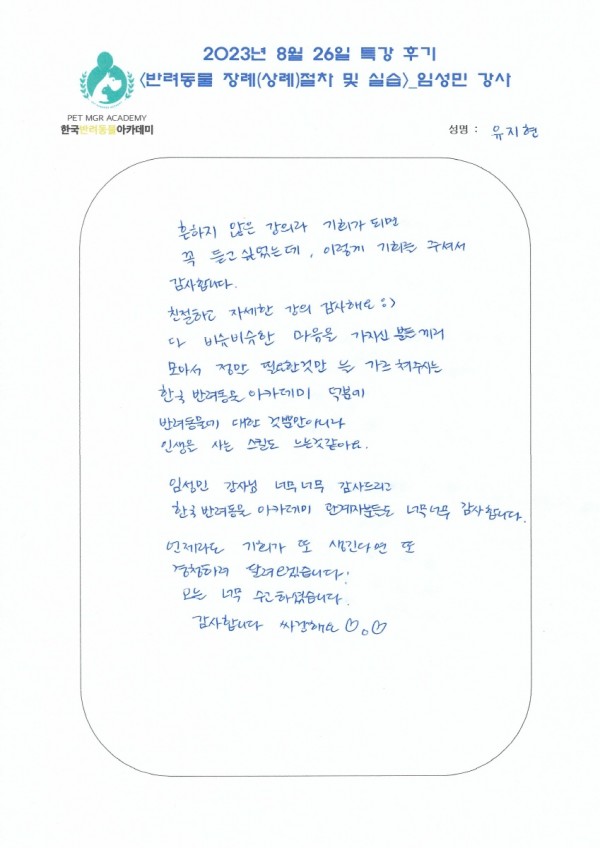 2023년 8월 26일 특강 후기
<반려동물 장례(상례)절차 및 실습>_임성민 강사
PET MGR ACADEMY
한국반려동물아카데미
성명 : 유지현
흔하지 않은 강의라 기회가 되면
꼭 듣고 싶었는데, 이렇게 기회를 주셔서
감사합니다.
친절하고 자세한 강의 감사해요 :)
다 비슷비슷한 마음을 가지신 분들끼리
모아서 정말 필요한것만 쏙 가르쳐주시는
한국 반려동물 아카데미 덕분에
반려동물에 대한 것뿐만아니라
인생을 사는 스킬도 느는것같아요.
임성민 강사님 너무너무 감사드리고
한국 반려동물 아카데미 관계자분들도 너무너무 감사합니다.
언제라도 기회가 또 생긴다면 또
경청하러 달려오겠습니다!
오늘 너무 수고하셨습니다.
감사합니다 싸랑해요